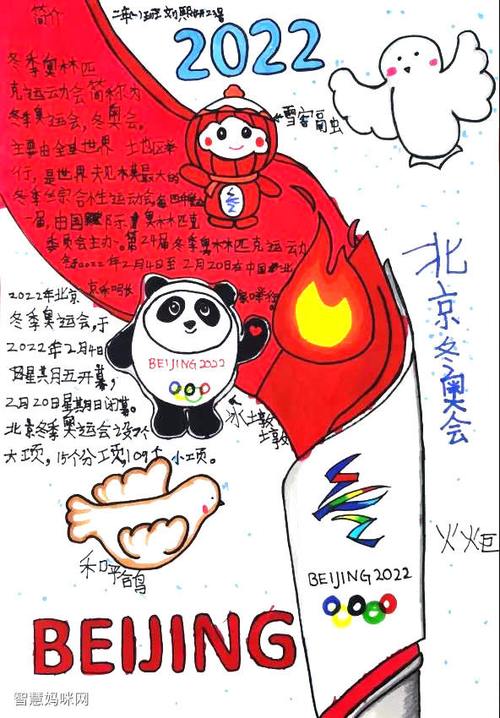 简介
2022
冬季奥林匹
克运动会简称为
冬季奥运会,冬奥会。
主要由全世界 土也区举
行,是世界规模最大的
冬季综合性运动会
一届,由国际奥林匹克
委员会主办。第24届冬季奥林匹克运动
会2022年2月4日至2月20日在中国
雪容融
2022年北京
冬季奥运会,于
2022年2月4日
星期五开幕,
2月20日星期日闭幕。
北京冬季奥运会设7个
大项,15个分项,109个小项。
BEIJING 2022
冰土敦
土敦
北京冬奥会
和平鸽
火火巨
BEIJING 2022
BEIJING
智慧妈咪网